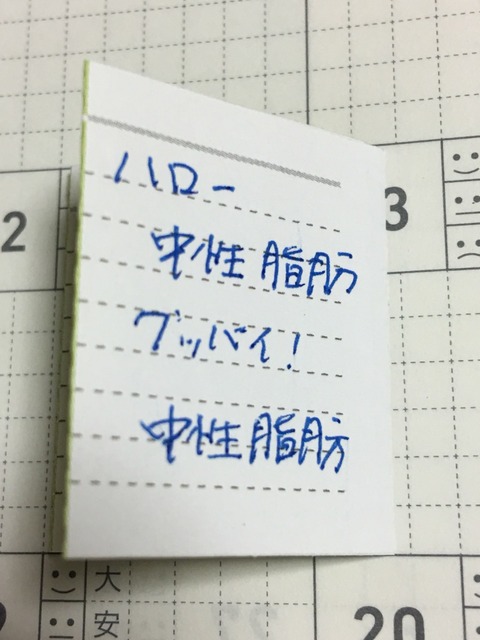 ハロー
中性脂肪
グッバイ!
中性脂肪
2
3
大
安
20